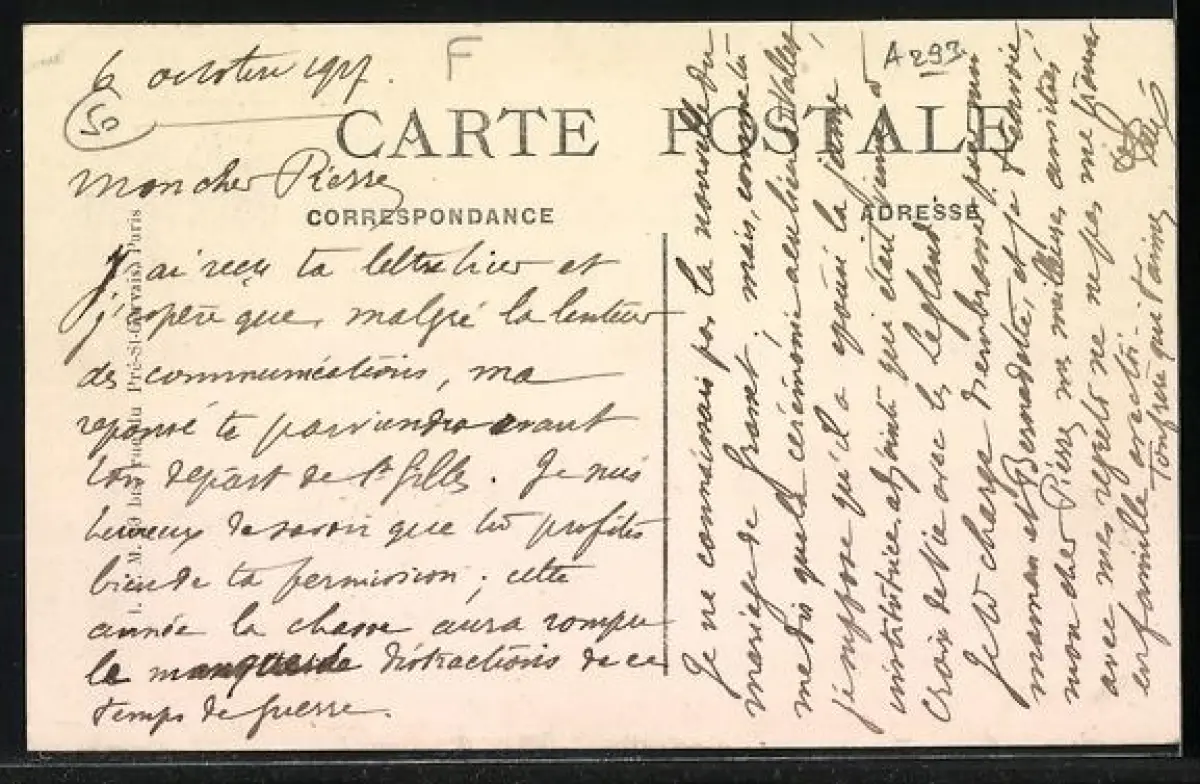 6 octobre 1917.
F
A 293
50
CARTE POSTALE
Mon cher Pierre
CORRESPONDANCE
ADRESSE
J'ai reçu ta lettre hier et
j'espère que, malgré la lenteur
des communications, ma
reponse te parviendra avant
ton départ de St Gilles. Je suis
heureux de savoir que tu profites
bien de ta permission ; cette
année la chasse aura rompu
le manque de distractions de ce
temps de guerre.
Je ne connaissais pas la nouvelle du
mariage de ; mais, comme tu
me dis que la cérémonie a eu lieu
je suppose qu'il a épousé la jeune
institutrice adjointe qui était venue à
Croix de Vie avec les
Je te charge d'embrasser pour moi
maman et Bernadette, et je t'envoie,
mon cher Pierre, mes meilleures amitiés
avec mes regrets de ne pas me trouver
en famille avec toi.
Ton frère qui t'aime
Pré-St-Gervais) Paris